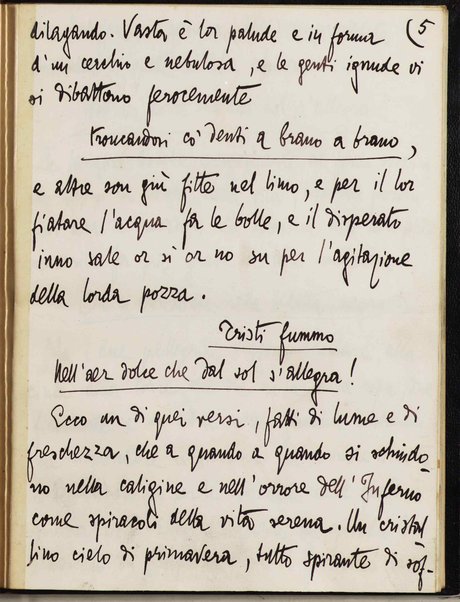 dilagando. Vasta è lor palude e in forma (5
d'un cerchio e nebulosa, e le genti ignude vi
si dibattono ferocemente
troncandosi co' denti a brano a brano,
e altre son giù fitte nel limo, e per il lor
fiatare l'acqua fa le bolle, e il disperato
inno sale or sì or no su per l'agitazione
della lorda pozza.
Tristi fummo
Nell'aer dolce che dal sol s'allegra!
Ecco un di quei versi, fatti di lume e di
freschezza, che a quando a quando si schiudo-
no nella caligine e nell'orrore dell'Inferno
come spiracoli della vita serena. Un cristal
lino cielo di primavera, tutto spirante di sof-